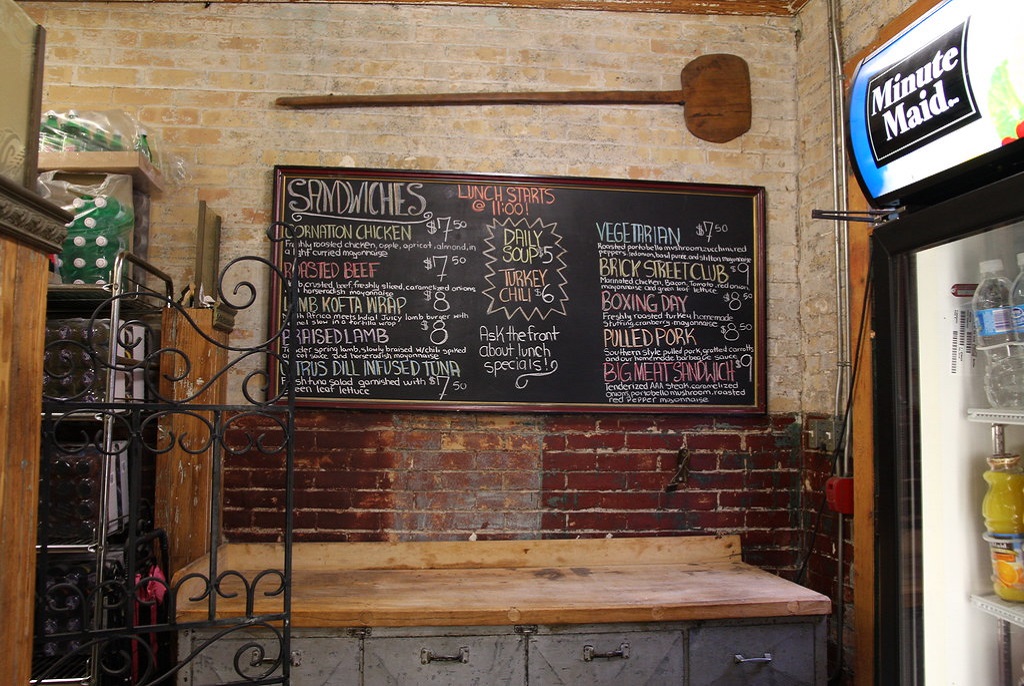 Minute
Maid
SANDWICHES
LUNCH STARTS
@ 11:00!
CHICKEN $7.50
roasted chicken, apple, apricot, almond, in
curried mayonnaise
ROASTED BEEF $7.50
crusted beef, freshly sliced, caramelized onions
horseradish mayonnaise
KOFTA WRAP $8
Africa meets India! Juicy lamb burger with
slaw in a tortilla wrap
BRAISED LAMB $8
spring lamb, slowly braised w/ chili spiked
sauce, and horseradish mayonnaise
DILL INFUSED TUNA
tuna salad garnished with $7.50
leaf lettuce
DAILY
SOUP $5
TURKEY
CHILI $6
Ask the front
about lunch
specials!
VEGETARIAN $7.50
Roasted portobello mushroom, zucchini, red
peppers, onion, basil puree, and stilton mayonnaise
BRICK STREET CLUB $9
Marinated chicken, Bacon, Tomato, red onion
mayonnaise and green leaf lettuce
BOXING DAY $8.50
Freshly roasted turkey, homemade
stuffing, cranberry mayonnaise
PULLED PORK $8.50
Southern style pulled pork, grated carrots
and our homemade barbeque sauce
BIG MEAT SANDWICH $9
Tenderized AAA steak, caramelized
onion, portobello mushroom, roasted
red pepper mayonnaise